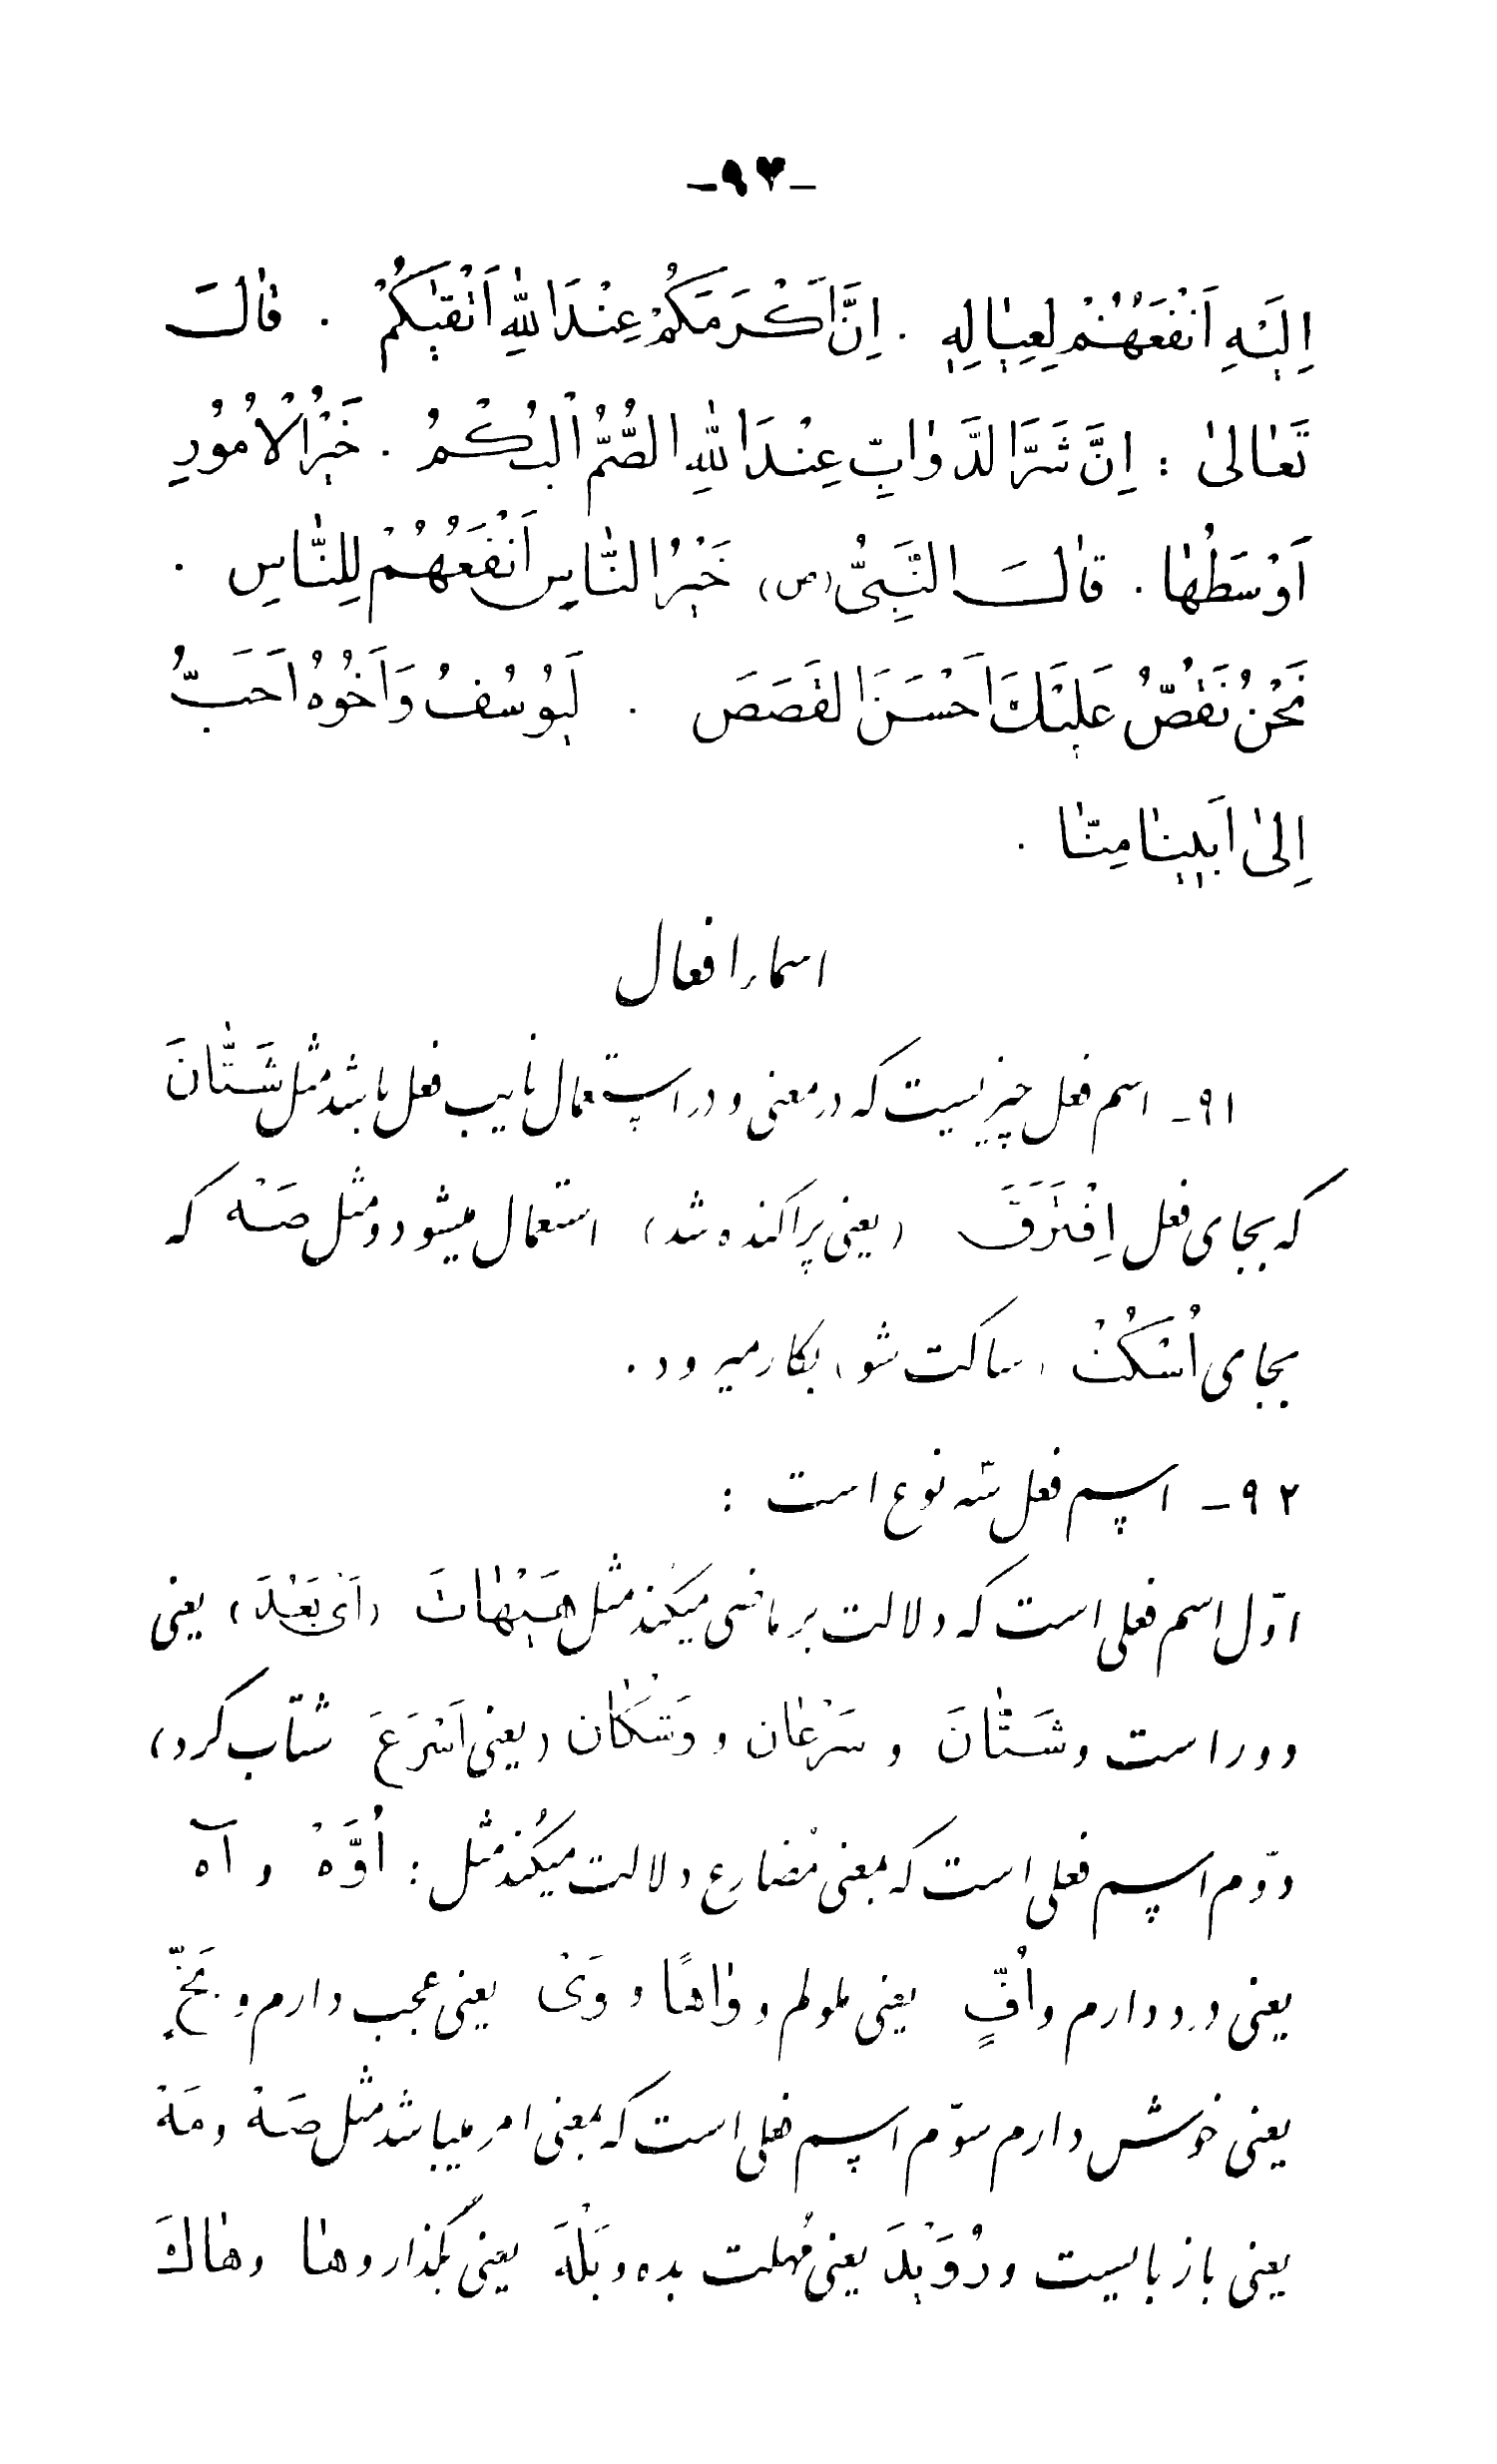 -۹۳-
اِلَیْهِ اَنْفَعَهُمْ لِعِیٰالِهِ . اِنَّ اَکْرَمَکُمْ عِنْدَاللّٰهِ اَتْقیٰکُمْ . قٰالَ
تَعٰالیٰ : اِنَّ شَرَّ الدَّوٰابِّ عِنْدَاللّٰهِ الصُّمُّ الْبُکْمُ . خَیْرُ الْاُمُوْرِ
اَوْسَطُهٰا . قٰالَ النَّبِیُّ (ص) خَیْرُ النّٰاسِ اَنْفَعُهُمْ لِلنّٰاسِ .
نَحْنُ نَقُصُّ عَلَیْکَ اَحْسَنَ القَصَصَ . لَیُوْسُفُ وَ اَخُوْهُ اَحَبُّ
اِلیٰ اَبِینٰا مِنّٰا .
اسماء افعال
۹۱- اسم فعل چیزیست که در معنی و در استعمال نایب فعل باشد مثل شَتّٰانَ
که بجای فعل اِفْتَرَقَ (یعنی پراکنده شد) استعمال میشود و مثل صَهْ که
بجای اُسْکُتْ ، ساکت شو ، بکار میرود .
۹۲- اسم فعل سه نوع است :
اوّل اسم فعلی است که دلالت بر ماضی میکند مثل هَیْهٰاتَ (اَیْ بَعُدَ) یعنی
دور است و شَتّٰانَ و سَرْعٰان و وَشْکٰان (یعنی اَسْرَعَ شتاب کرد)
دوّم اسم فعلی است که بمعنی مُضارع دلالت میکُند مثل : اُوَّهْ و آه
یعنی درد دارم و اُفٍّ یعنی ملولم و وٰاهًا و وَیْ یعنی عجب دارم و بَخٍّ
یعنی خوش دارم سوّم اسم فعلی است که بمعنی امر میباشد مثل صَهْ و مَهْ
یعنی باز بایست و رُوَیْدَ یعنی مُهلت بده و بَلْهَ یعنی بگذار و هٰا و هٰاکَ